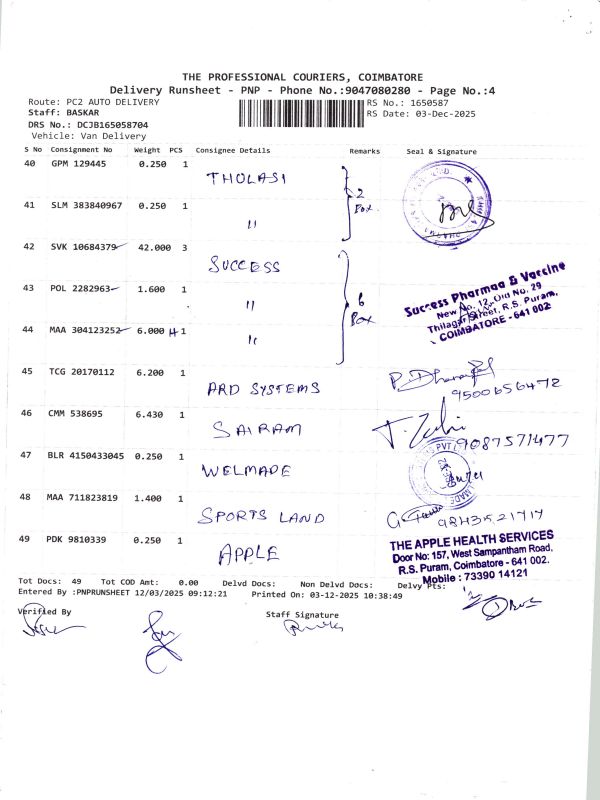 THE PROFESSIONAL COURIERS, COIMBATORE
Delivery Runsheet - PNP - Phone No.:9047080280 - Page No.:4
Route: PC2 AUTO DELIVERY RS No.: 1650587
Staff: BASKAR RS Date: 03-Dec-2025
DRS No.: DCJB165058704
Vehicle: Van Delivery
S No Consignment No Weight PCS Consignee Details Remarks Seal & Signature
40 GPM 129445 0.250 1 THULASI
2 Box
41 SLM 383840967 0.250 1 "
42 SVK 10684379 42.000 3 SUCCESS
43 POL 2282963 1.600 1 "
6 Box
44 MAA 304123252 6.000 1 "
Success Pharmaa & Vaccine
New No. 12, Old No. 29
Thilagar Street, R.S. Puram,
COIMBATORE - 641 002
45 TCG 20170112 6.200 1 ARD SYSTEMS
9500656472
46 CMM 538695 6.430 1 SAIRAM
9087571477
47 BLR 4150433045 0.250 1 WELMADE
48 MAA 711823819 1.400 1 SPORTS LAND
9843521717
49 PDK 9810339 0.250 1 APPLE
THE APPLE HEALTH SERVICES
Door No: 157, West Sampantham Road,
R.S. Puram, Coimbatore - 641 002.
Mobile : 73390 14121
Tot Docs: 49 Tot COD Amt: 0.00 Delvd Docs: Non Delvd Docs: Delvy Pts:
Entered By :PNPRUNSHEET 12/03/2025 09:12:21 Printed On: 03-12-2025 10:38:49
Verified By Staff Signature